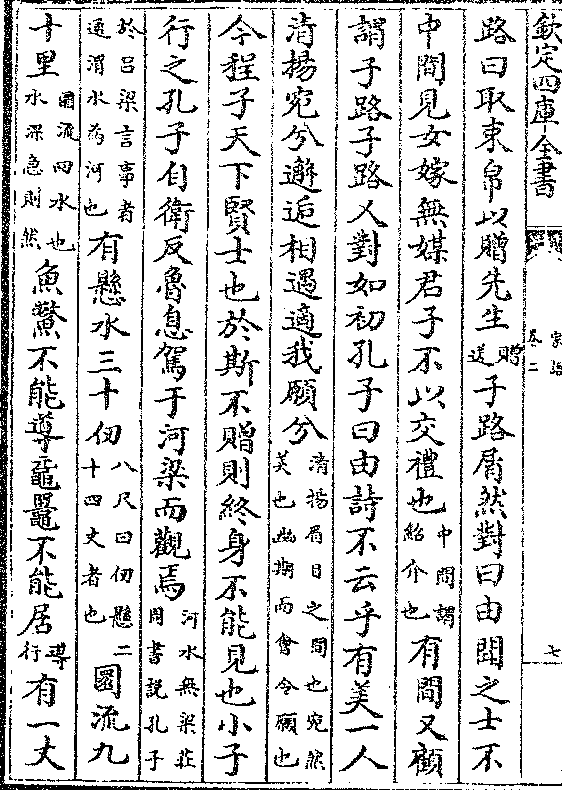 欽定四庫全書 家語 卷二 七
路曰取束帛以贈先生贈送子路屑然對曰由聞之士不
中間見女嫁無媒君子不以交禮也中間謂紹介也有間又顧
謂子路子路又對如初孔子曰由詩不云乎有美一人
清揚宛兮邂逅相遇適我願兮清揚眉目之間也宛然美也幽期而會令願也
今程子天下賢士也於斯不贈則終身不能見也小子
行之孔子自衛反魯息駕于河梁而觀焉河水無梁莊周書說孔子
於呂梁言事者通渭水為河也有懸水三十仞八尺曰仞懸二十四丈者也圜流九
十里圜流回水也水深急則然魚鱉不能導黿鼉不能居導行有一丈